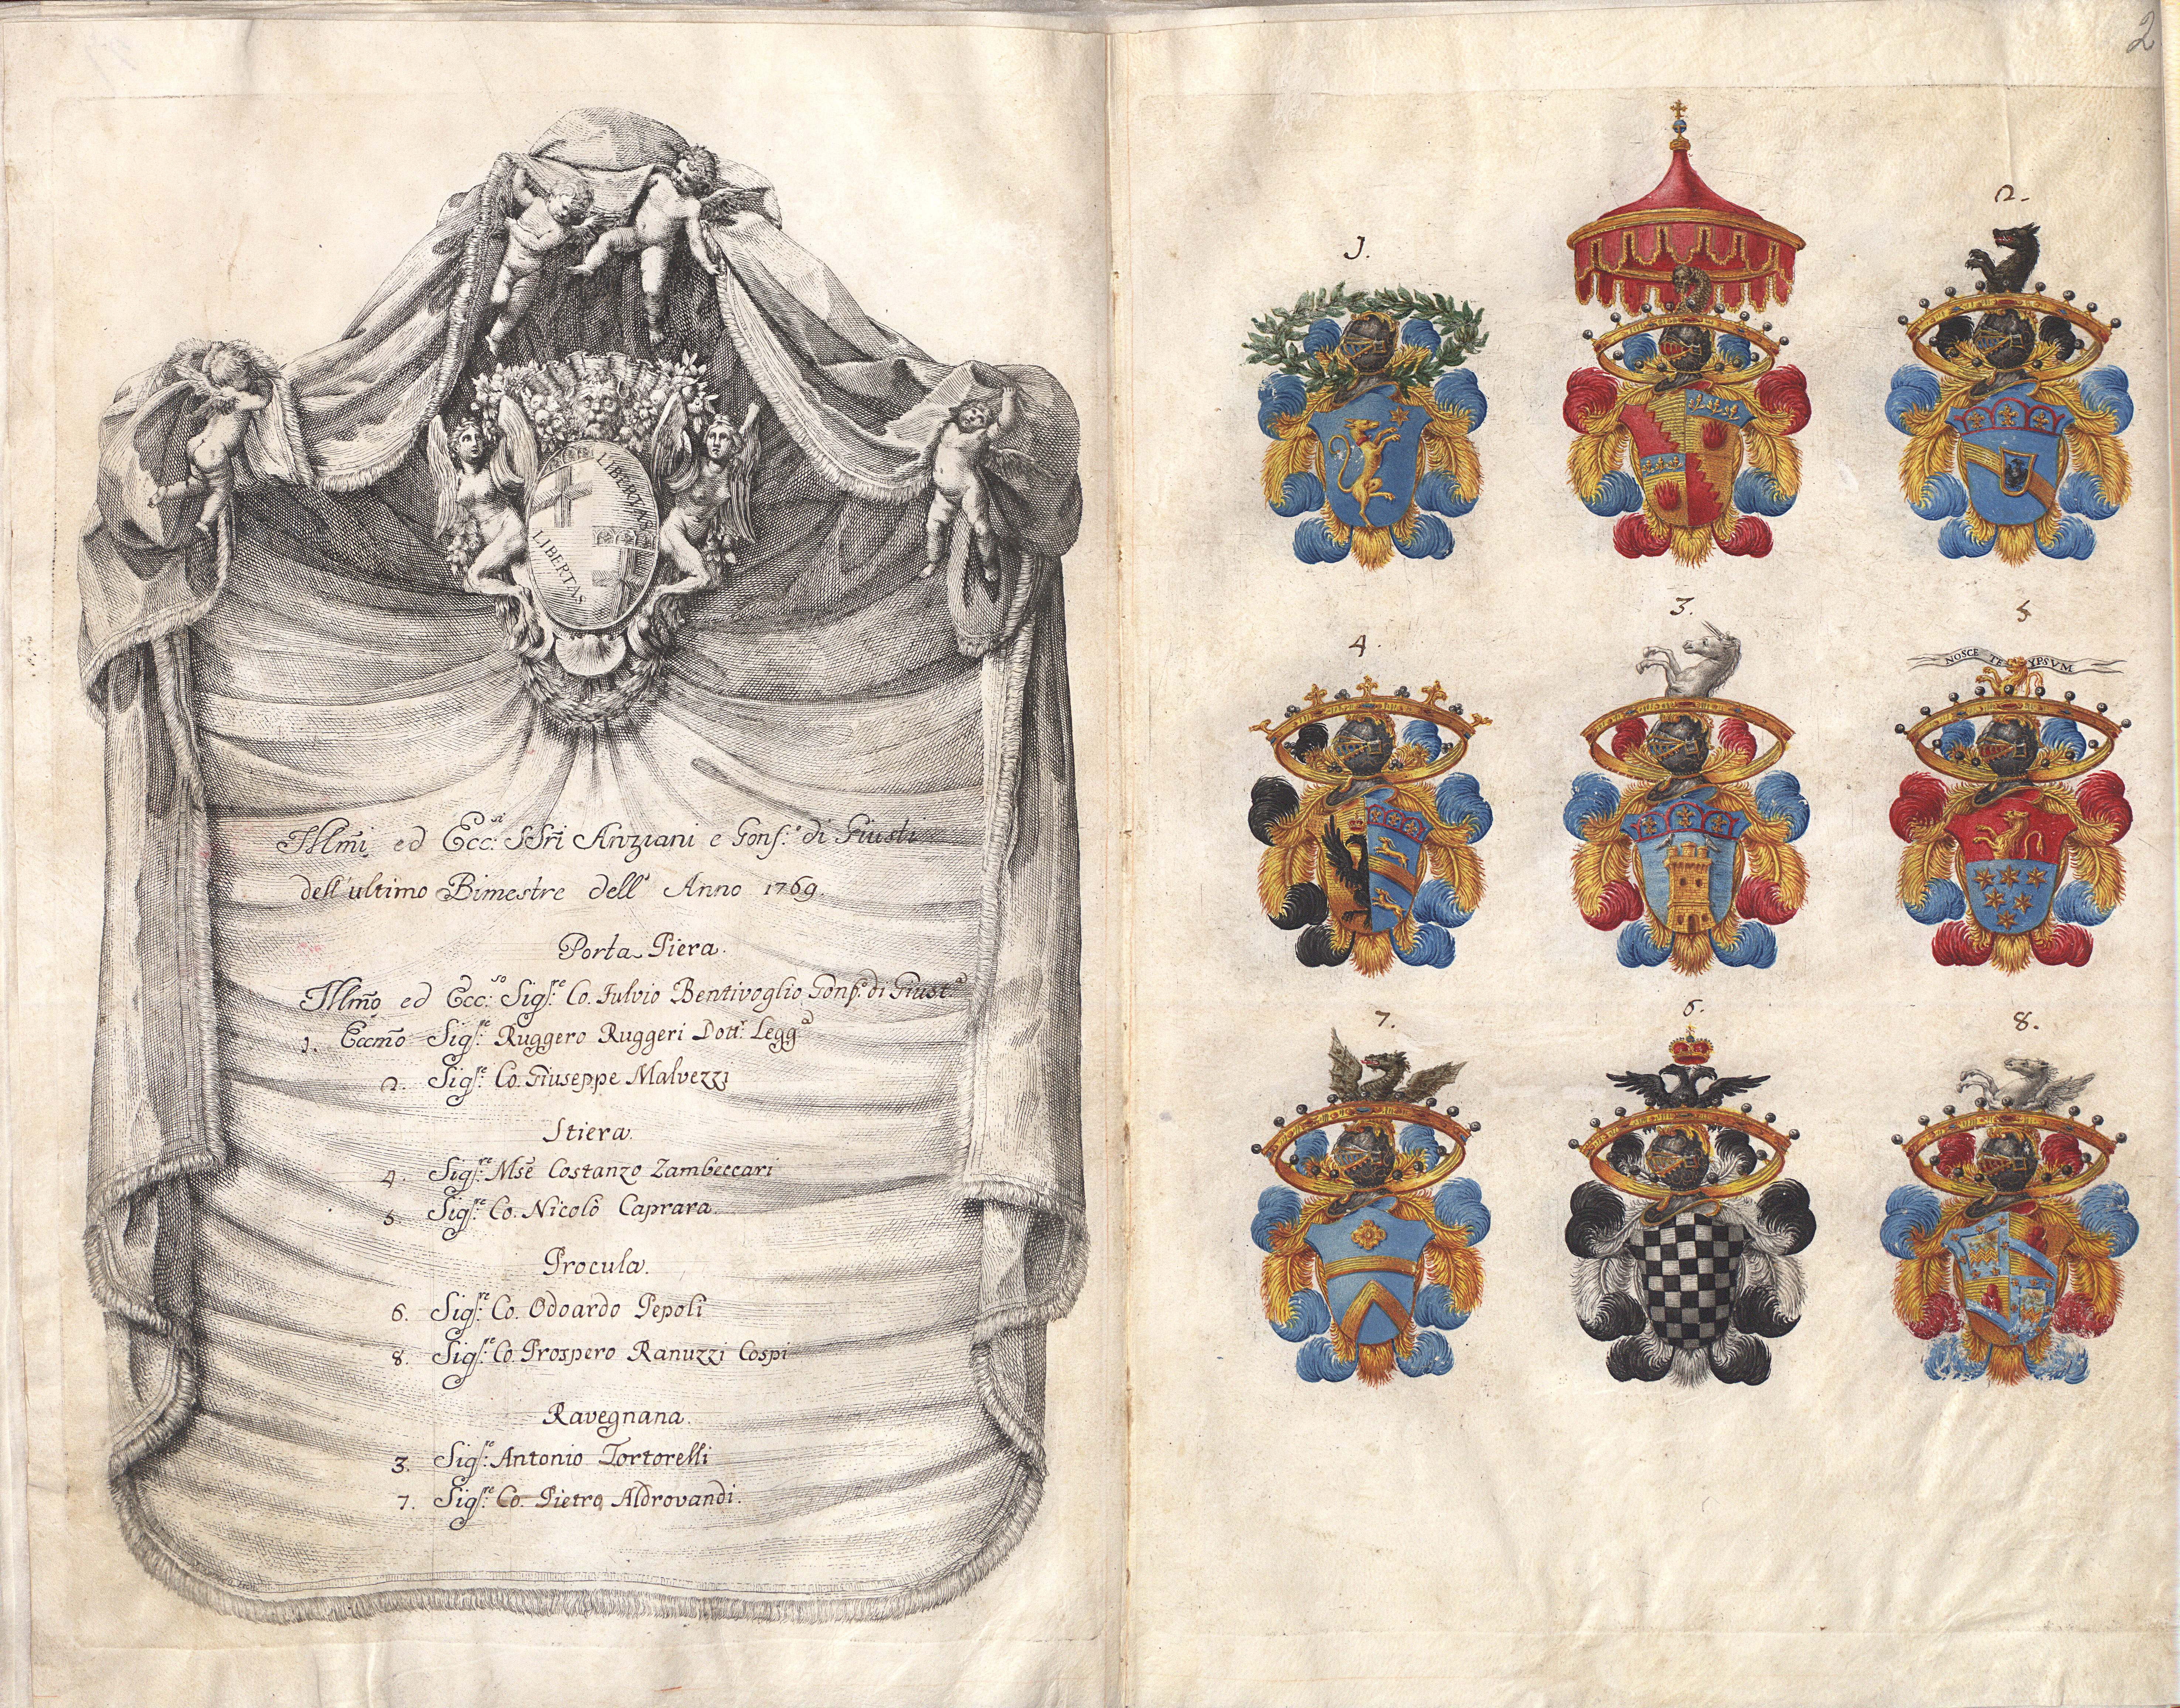 LIBERTAS
LIBERTAS
Illm̃i ed Ecc:si SSri Anziani e Gonf.e di Giusti
dell'ultimo Bimestre dell' Anno 1769.
Porta Piera.
Illm̃o ed Ecc:so Sigf:re Co. Fulvio Bentivoglio Gonf.e di Giust.a
1. Eccm̃o Sigf:re Ruggero Ruggeri Dott.r Legg.a
2. Sigf:re Co. Giuseppe Malvezzi
Stiera.
4. Sigf:re Mse Costanzo Zambeccari
5. Sigf:re Co. Nicolò Caprara.
Procula.
6. Sigf:re Co. Odoardo Pepoli
8. Sigf:re Co. Prospero Ranuzzi Cospi
Ravegnana.
3. Sigf:re Antonio Tortorelli
7. Sigf:re Co. Pietro Aldrovandi.
2
1.
2.
4.
3.
5
NOSCE TE YPSVM
7.
6.
8.